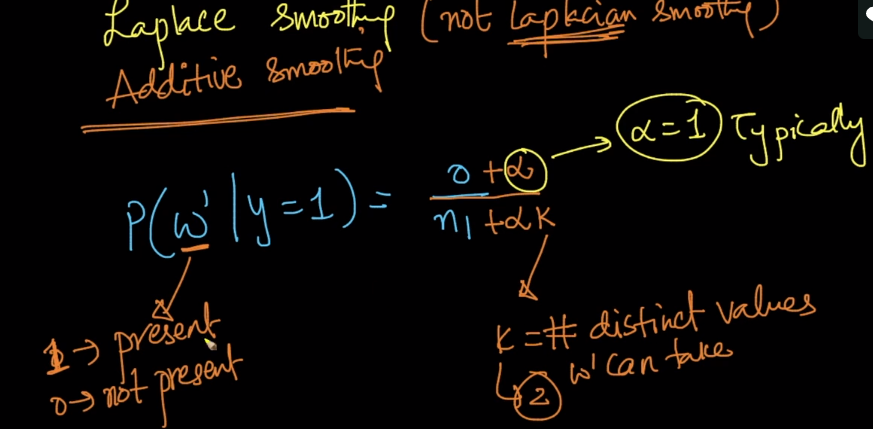 Laplace smoothing (not Laplacian smoothing)
Additive smoothing
P(w'|y=1) = (0+α)/(n₁+αK) → α=1 Typically
1 → present
0 → not present
K = # distinct values
w' can take
2